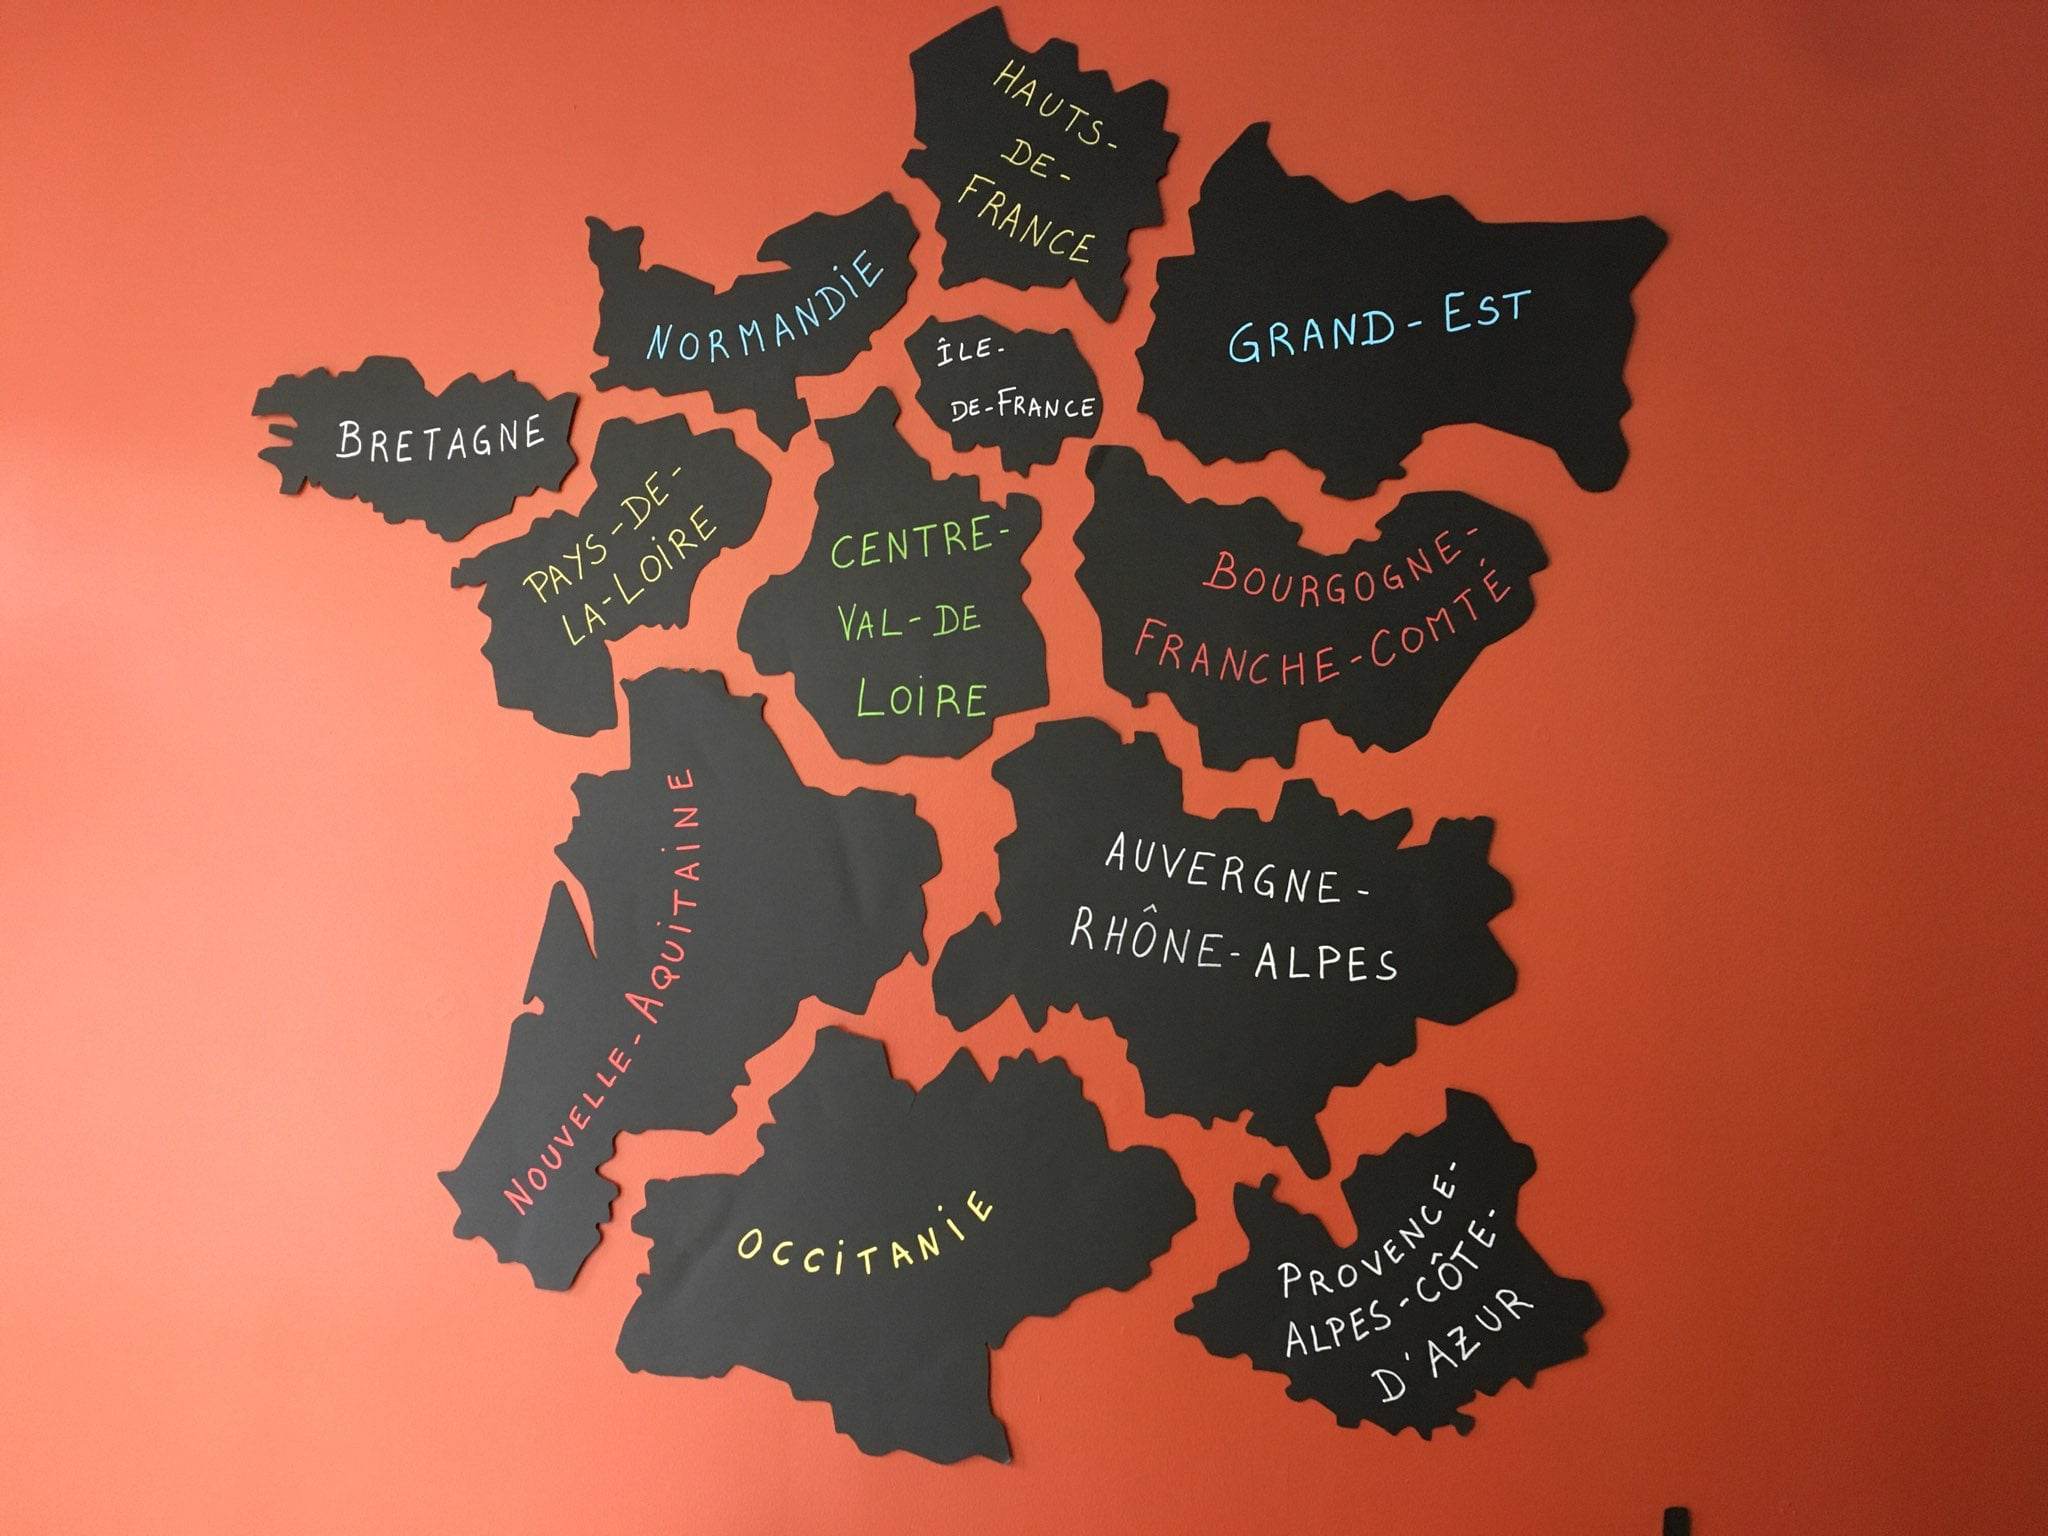 HAUTS-
DE-
FRANCE
NORMANDIE
GRAND-EST
ÎLE-
DE-FRANCE
BRETAGNE
PAYS-DE-
LA-LOIRE
CENTRE-
VAL-DE
LOIRE
BOURGOGNE-
FRANCHE-COMTÉ
NOUVELLE-AQUITAINE
AUVERGNE-
RHÔNE-ALPES
OCCITANIE
PROVENCE-
ALPES-CÔTE-
D'AZUR